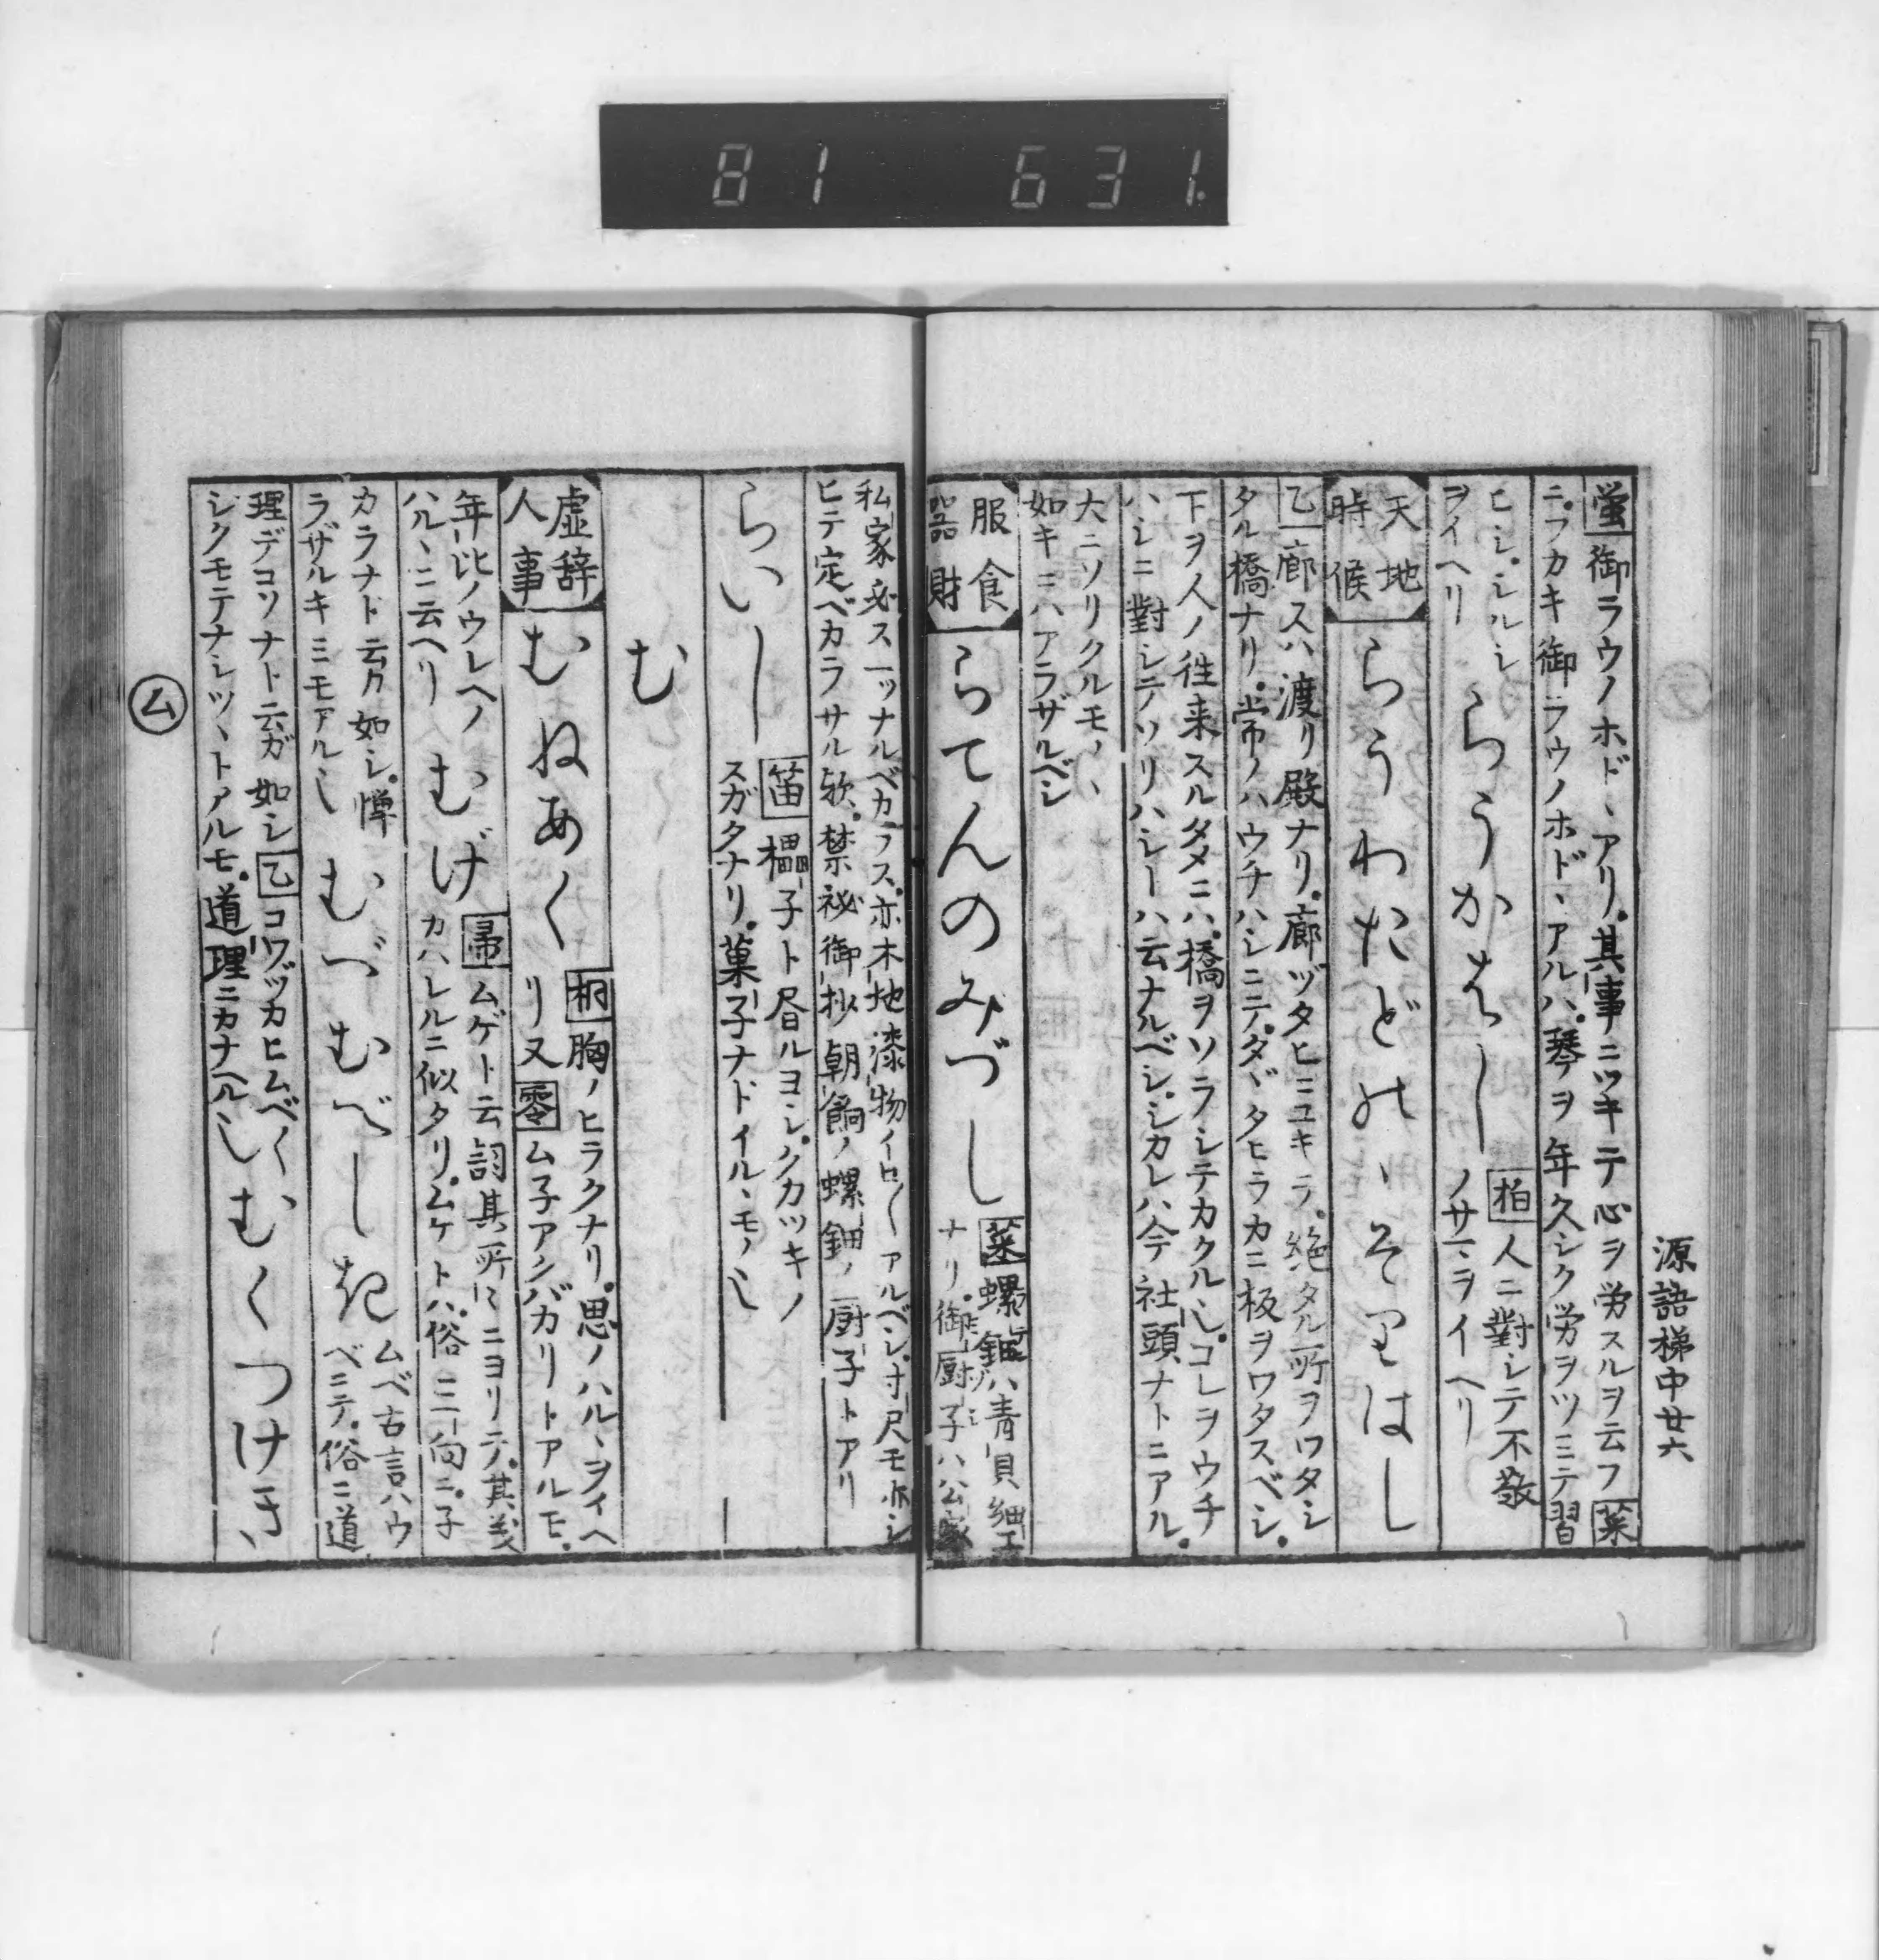 81 631.
源語梯中廿六
蛍 御ラウノホドヽアリ。其事ニツキテ心ヲ労スルヲ云フ 菜
ニ。フカキ御ラウノホドヽアルハ。琴ヲ年久シク労ヲツミテ習
ヒシ。シルシ
ヲイヘリ
らうかはし
柏 人ニ對シテ不敬
ノサマヲイヘリ
天地
時候
らうわたどのヽそりはし
乙 廊スハ渡リ殿ナリ。廊ヅタヒニユキテ。絶タル所ヲワタシ
タル橋ナリ。常ノハウチハシニテ。タヾタヒラカニ板ヲワタスベシ。
下ヲ人ノ往来スルタメニハ。橋ヲソラシテカクル也。コレヲウチ
ハシニ對シテソリハシトハ云ナルベシ。シカレハ今社頭ナトニアル。
大ニソリクルモノヽ
如キニハアラザルベシ
服食
器財
らてんのみづし
菜 螺鈿ハ青貝細工
ナリ。御厨子ハ公家
私家必ス一ッナルベカラス。亦木地漆物イロ〳〵アルベシ。寸尺モ亦シ
ヒテ定ベカラサル歟。禁祕御抄朝餉ノ螺鈿ノ厨子トアリ
らいし
笛 櫑子ト昼ルヨシ。クカツキノ
スガタナリ。菓子ナドイルヽモノ也
む
虚辞
人事
むねあく
桐 胸ノヒラクナリ。思ノハルヽヲイヘ
リ又 零 ム子アクバカリトアルモ。
年比ノウレヘノ
ハルヽニ云ヘリ
むげ
帚 ムゲト云詞其所〻ニヨリテ。其義
カハレルニ似タリ。ムケトハ。俗ニ一向ニ。子
カラナド云カ如シ。憚
ラザルキミモアル也
むべむべしき
ムベ古言ハウ
ベニテ。俗ニ道
理デコソナト云ガ如シ 乙 コワヅカヒムベ〳〵
シクモテナシツヽトアルモ。道理ニカナヘル也
むくつけき
ム